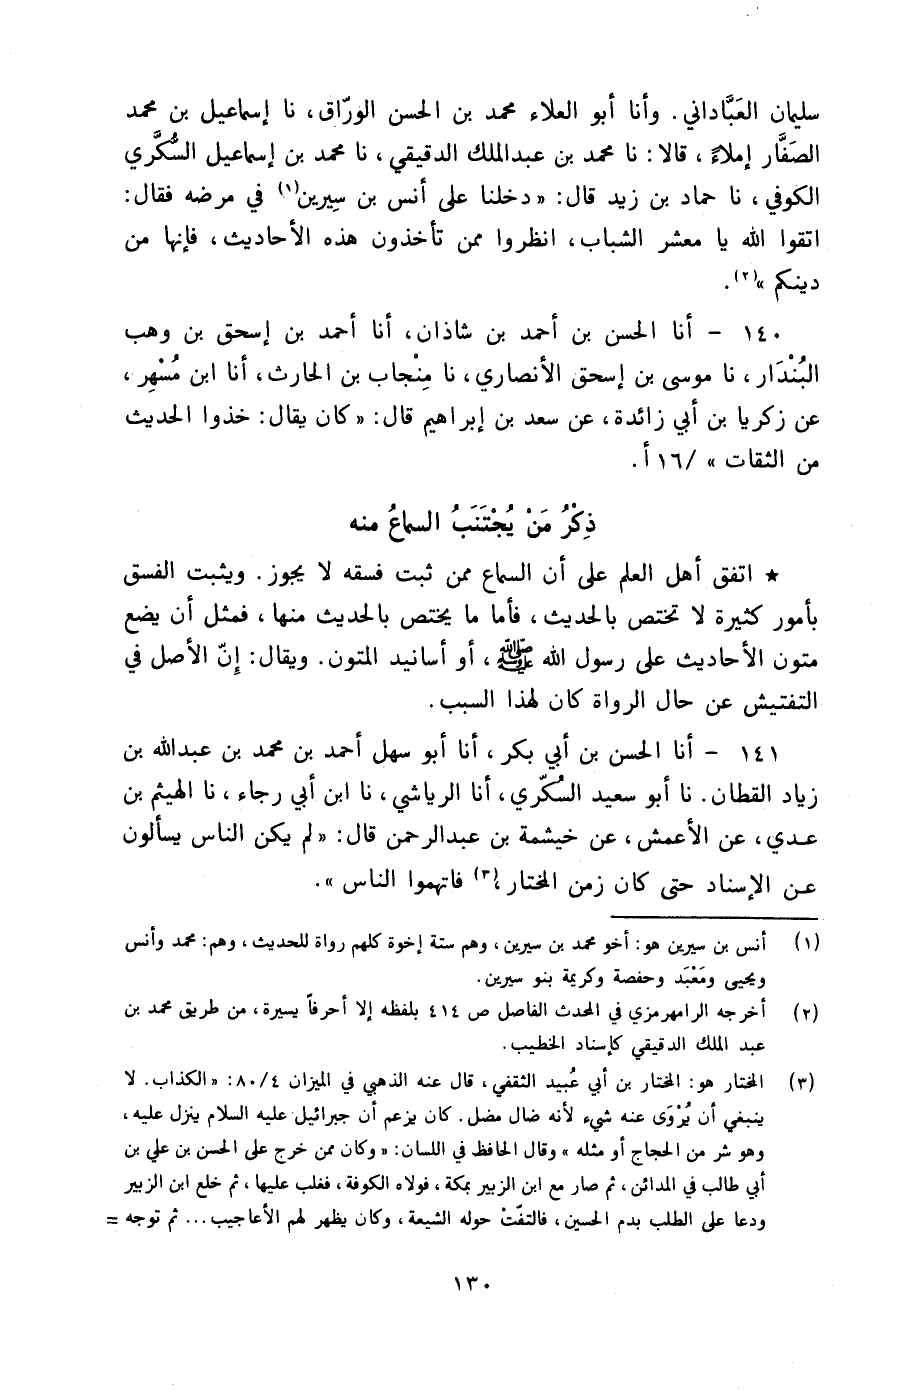 سليمان العَبَّاداني. وأنا أبو العلاء محمد بن الحسن الورّاق، نا إسماعيل بن محمد
الصَفَّار إملاءً، قالا: نا محمد بن عبدالملك الدقيقي، نا محمد بن إسماعيل السُّكَّري
الكوفي، نا حماد بن زيد قال: «دخلنا على أنس بن سِيرين(١) في مرضه فقال:
اتقوا الله يا معشر الشباب، انظروا ممن تأخذون هذه الأحاديث، فإنها من
دينكم»(٢).
١٤٠ - أنا الحسن بن أحمد بن شاذان، أنا أحمد بن إسحق بن وهب
البُنْدَار، نا موسى بن إسحق الأنصاري، نا مِنْجاب بن الحارث، أنا ابن مُسْهِر،
عن زكريا بن أبي زائدة، عن سعد بن إبراهيم قال: «كان يقال: خذوا الحديث
من الثقات» /١٦أ.
ذِكْرُ مَنْ يُجْتَنَبُ السماعُ منه
★ اتفق أهل العلم على أن السماع ممن ثبت فسقه لا يجوز. ويثبت الفسق
بأمور كثيرة لا تختص بالحديث، فأما ما يختص بالحديث منها، فمثل أن يضع
متون الأحاديث على رسول الله ﷺ، أو أسانيد المتون. ويقال: إنّ الأصل في
التفتيش عن حال الرواة كان لهذا السبب.
١٤١ - أنا الحسن بن أبي بكر، أنا أبو سهل أحمد بن محمد بن عبدالله بن
زياد القطان. نا أبو سعيد السُكّري، أنا الرياشي، نا ابن أبي رجاء، نا الهيثم بن
عدي، عن الأعمش، عن خيثمة بن عبدالرحمن قال: «لم يكن الناس يسألون
عن الإسناد حتى كان زمن المختار،(٣) فاتهموا الناس».
(١) أنس بن سيرين هو: أخو محمد بن سيرين، وهم ستة إخوة كلهم رواة للحديث، وهم: محمد وأنس
ويحيى ومَعْبَد وحفصة وكريمة بنو سيرين.
(٢) أخرجه الرامهرمزي في المحدث الفاصل ص ٤١٤ بلفظه إلا أحرفاً يسيرة، من طريق محمد بن
عبد الملك الدقيقي كإسناد الخطيب.
(٣) المختار هو: المختار بن أبي عُبيد الثقفي، قال عنه الذهبي في الميزان ٨٠/٤: «الكذاب. لا
ينبغي أن يُرْوَى عنه شيء لأنه ضال مضل. كان يزعم أن جبرائيل عليه السلام ينزل عليه،
وهو شر من الحجاج أو مثله» وقال الحافظ في اللسان: «وكان ممن خرج على الحسن بن علي بن
أبي طالب في المدائن، ثم صار مع ابن الزبير بمكة، فولاه الكوفة، فغلب عليها، ثم خلع ابن الزبير
ودعا على الطلب بدم الحسين، فالتفّتْ حوله الشيعة، وكان يظهر لهم الأعاجيب... ثم توجه =
١٣٠